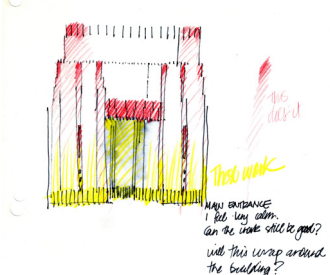 This
does it
These work
MAIN ENTRANCE
I feel very calm.
Can the work still be good?
will this wrap around
the building?